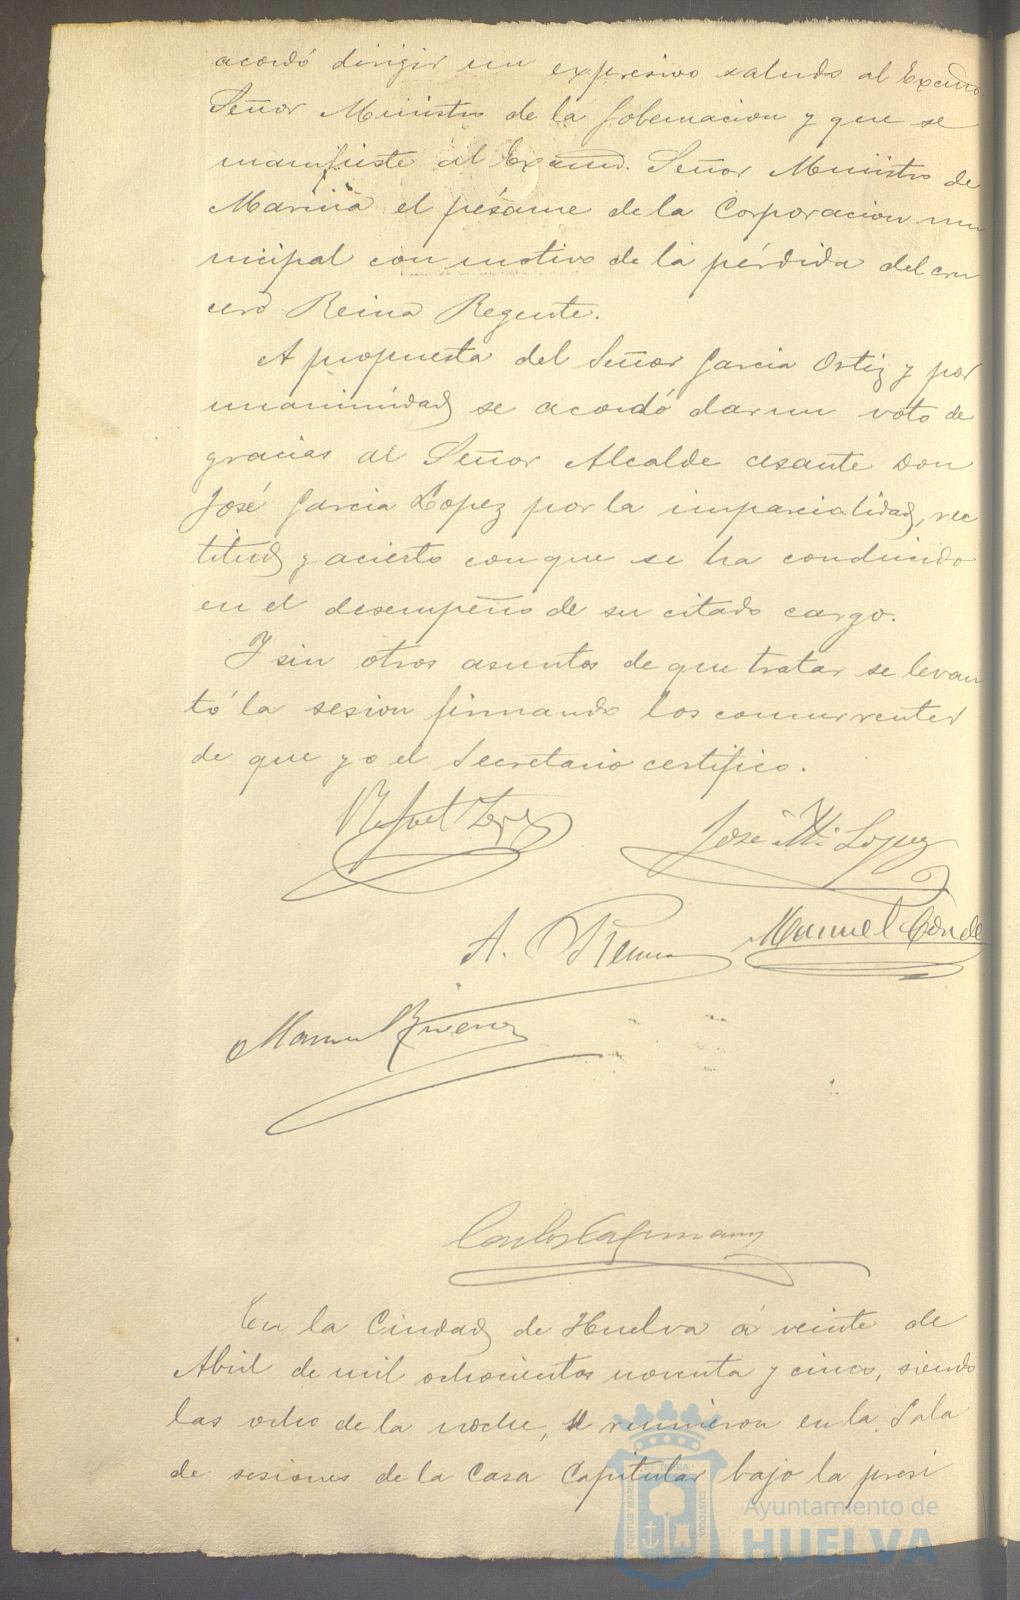 acordó dirigir un expresivo saludo al Excmo.
Señor Ministro de la Gobernacion y que se
manifieste al Excmo. Señor Ministro de
Marina el pésame de la Corporacion mu
nicipal con motivo de la pérdida del cru
cero Reina Regente.
A propuesta del Señor Garcia Ortiz y por
unanimidad se acordó dar un voto de
gracias al Señor Alcalde cesante Don
José Garcia Lopez por la imparcialidad, rec
titud y acierto con que se ha conducido
en el desempeño de su citado cargo.
Y sin otros asuntos de que tratar se levan
tó la sesion firmando los concurrentes
de que yo el Secretario certifico.
José Mª Lopez
A.
Manuel Conde
En la Ciudad de Huelva á veinte de
Abril de mil ochocientos noventa y cinco, siendo
las ocho de la noche, se reunieron en la Sala
de sesiones de la Casa Capitular bajo la presi
Ayuntamiento de
HUELVA